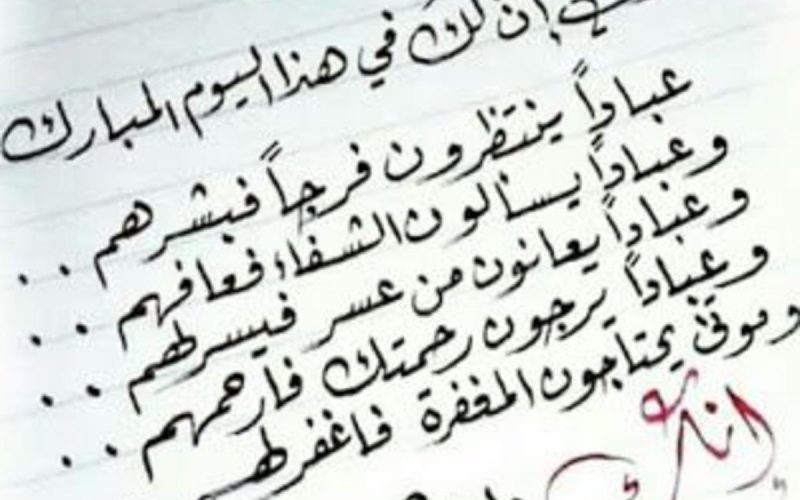 إن لك في هذا اليوم المبارك
عباداً ينتظرون فرجاً فبشرهم . .
وعباداً يسألون الشفاء فعافهم . .
وعباداً يعانون من عسر فيسر لهم . .
وعباداً يرجون رحمتك فارحمهم . .
وموتى يحتاجون المغفرة فاغفر لهم
إنك